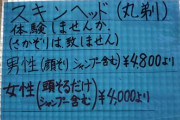 スキンヘッド(丸剃り)
体験しませんか。
(さかぞりは致しません)
男性(顔そりシャンプー含む)¥4,800より
女性(頭そるだけシャンプー含む)¥4,000より